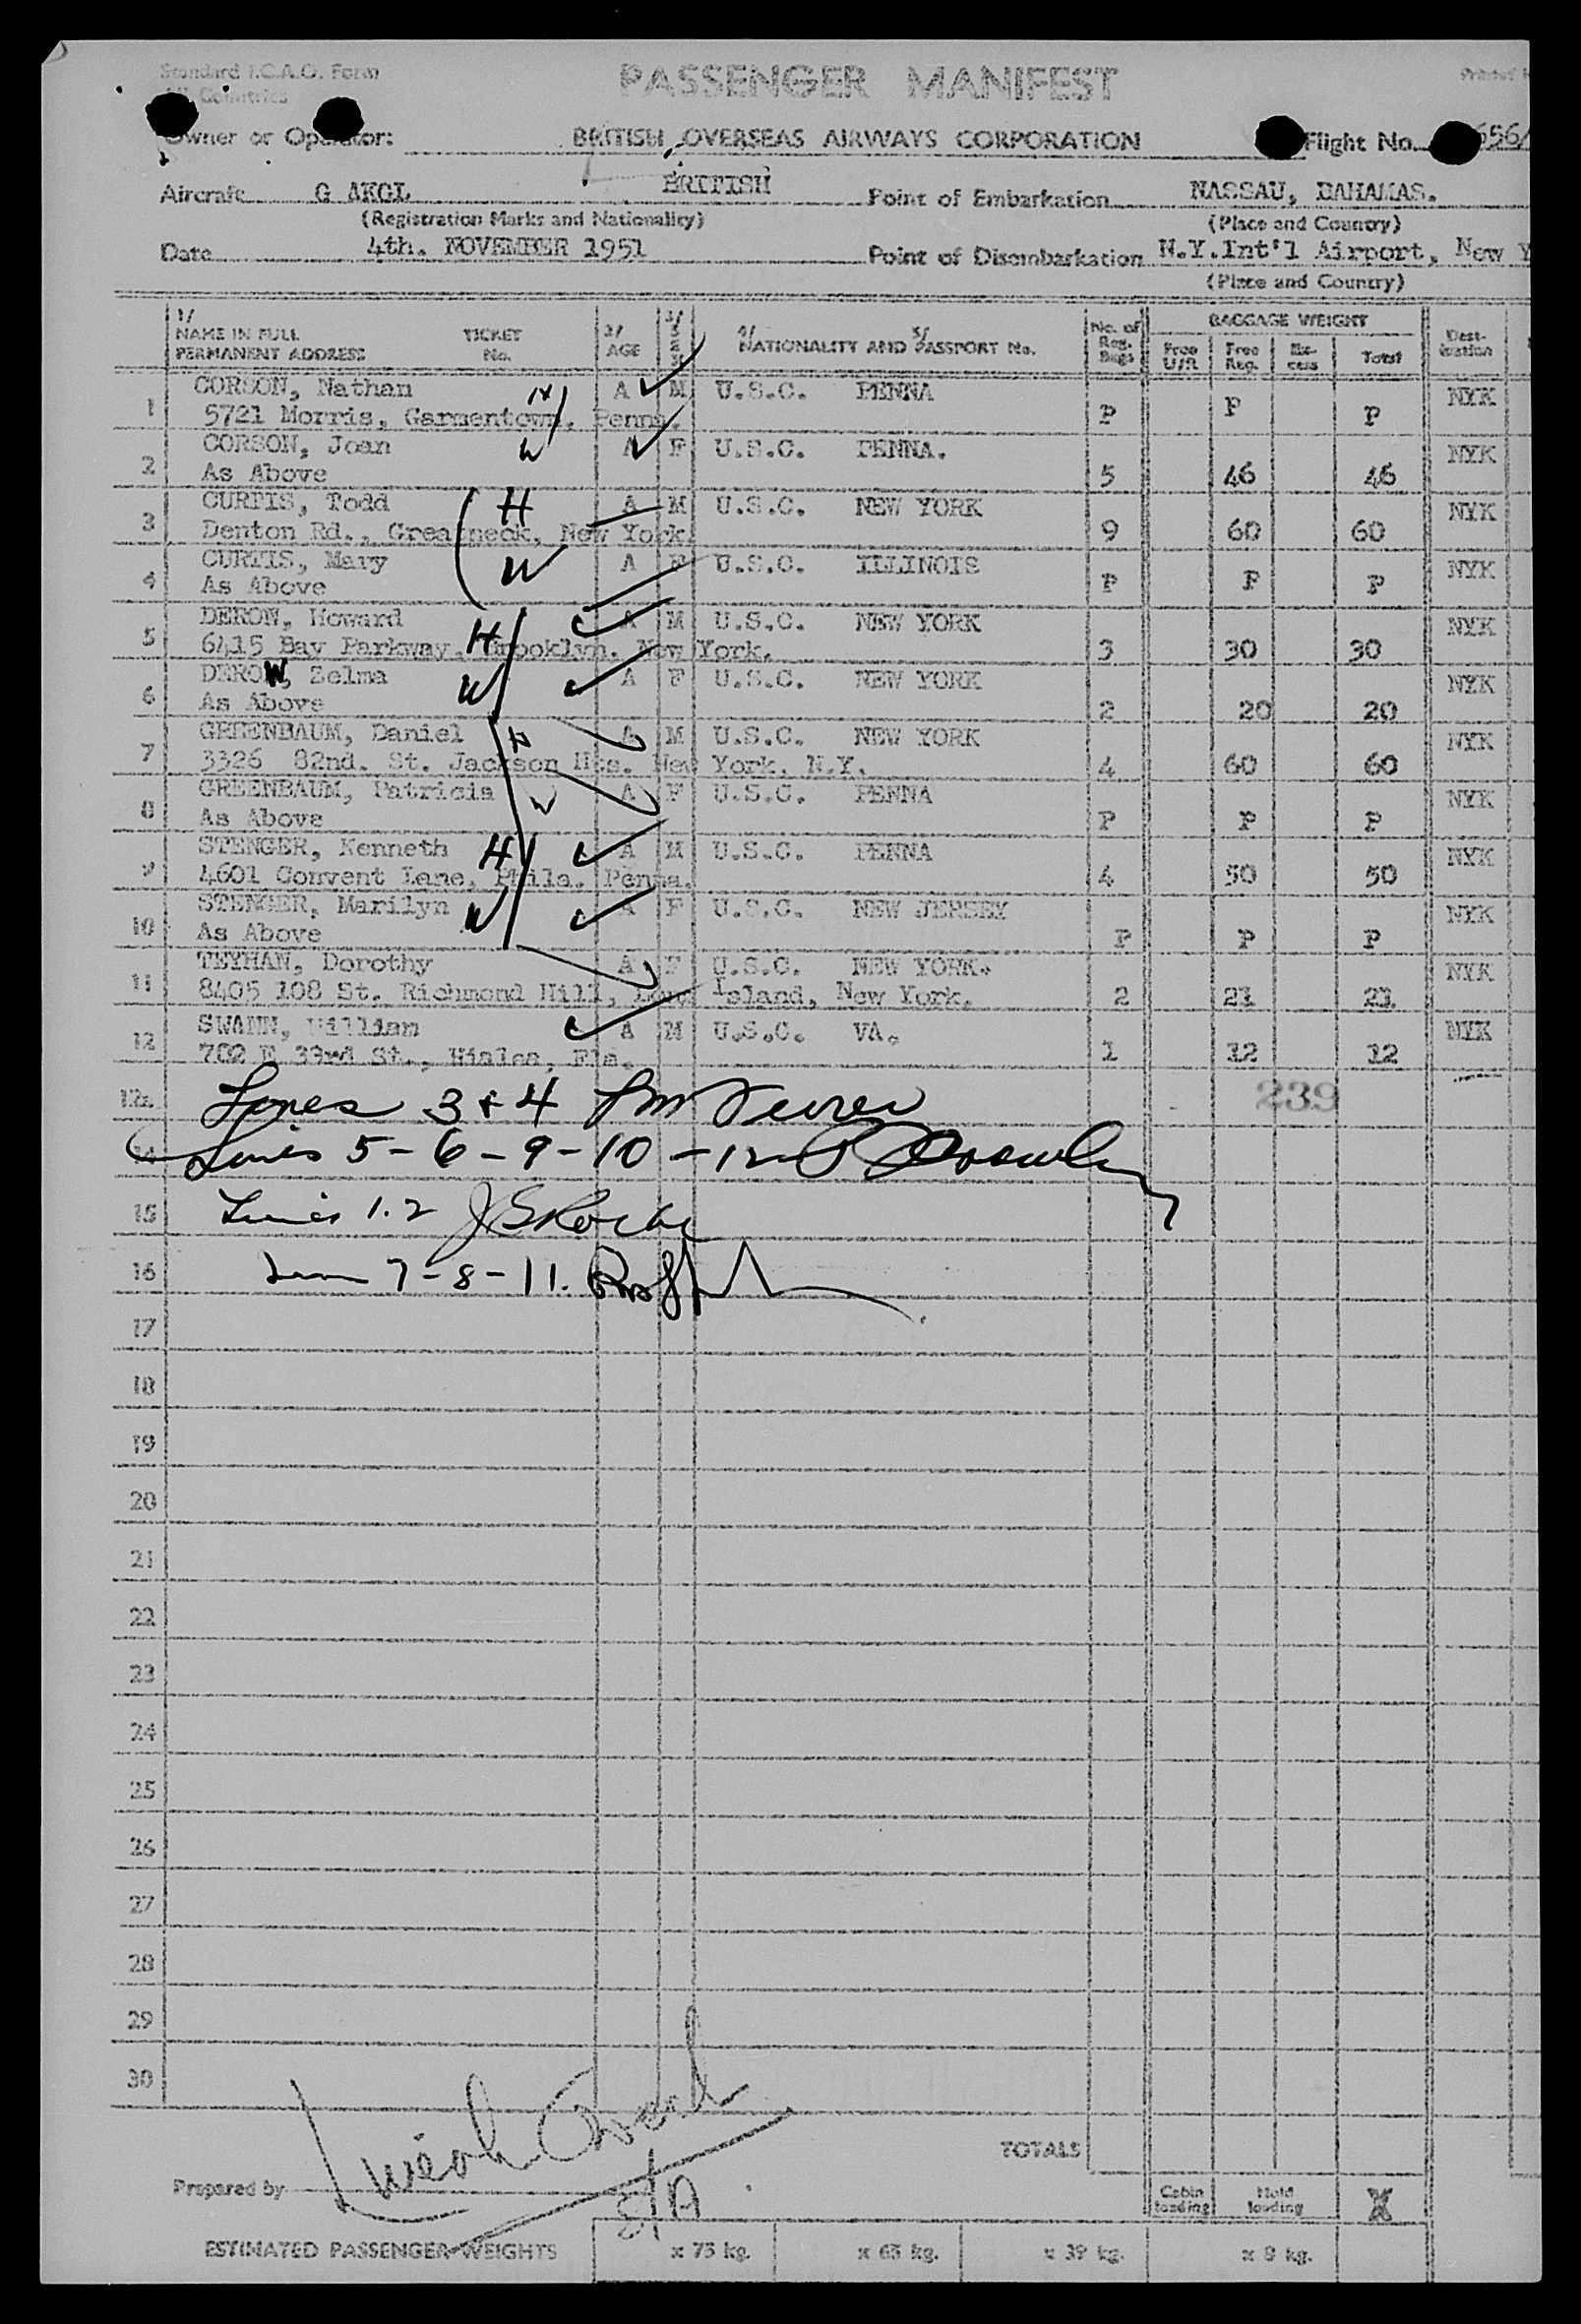 Standard I.C.A.O. Form
All Countries
PASSENGER MANIFEST
Owner or Operator: BRITISH OVERSEAS AIRWAYS CORPORATION Flight No. 656/
Aircraft G AKGL BRITISH Point of Embarkation NASSAU, BAHAMAS.
(Registration Marks and Nationality) (Place and Country)
Date 4th. NOVEMBER 1951 Point of Disembarkation N.Y.Int'l Airport, New Y
(Place and Country)
1/ NAME IN FULL PERMANENT ADDRESS TICKET No. 2/ AGE 3/ SEX 4/ 5/ NATIONALITY AND PASSPORT No. No. of Reg. Bags BAGGAGE WEIGHT Free U/R Free Reg. Ex-cess Total Dest-ination
1 CORSON, Nathan H A M U.S.C. PENNA P P P NYK
5721 Morris, Garmentown, Penna.
2 CORSON, Joan W A F U.S.C. PENNA. 5 46 46 NYK
As Above
3 CURTIS, Todd H A M U.S.C. NEW YORK 9 60 60 NYK
Denton Rd., Greatneck, New York
4 CURTIS, Mary W A F U.S.C. ILLINOIS P P P NYK
As Above
5 DERON, Howard H A M U.S.C. NEW YORK 3 30 30 NYK
6415 Bay Parkway, Brooklyn. New York.
6 DEROW, Selma W A F U.S.C. NEW YORK 2 20 20 NYK
As Above
7 GREENBAUM, Daniel H A M U.S.C. NEW YORK 4 60 60 NYK
3326 82nd. St. Jackson Hts. New York. N.Y.
8 GREENBAUM, Patricia W A F U.S.C. PENNA P P P NYK
As Above
9 STENGER, Kenneth H A M U.S.C. PENNA 4 50 50 NYK
4601 Convent Lane, Phila. Penna.
10 STENGER, Marilyn W A F U.S.C. NEW JERSEY P P P NYK
As Above
11 TEYHAN, Dorothy A F U.S.C. NEW YORK. 2 21 21 NYK
8405 108 St. Richmond Hill, Long Island, New York.
12 SWANN, William A M U.S.C. VA. 1 12 12 NYK
702 E 33rd St., Hialea, Fla.
12a Lines 3 + 4 239
14 Lines 5 - 6 - 9 - 10 - 12
15 Lines 1.2
16 7 - 8 - 11.
17
18
19
20
21
22
23
24
25
26
27
28
29
30
TOTALS
Prepared by S/A
Cabin loading Hold loading
ESTIMATED PASSENGER WEIGHTS x 75 kg. x 65 kg. x 39 kg. x 8 kg.